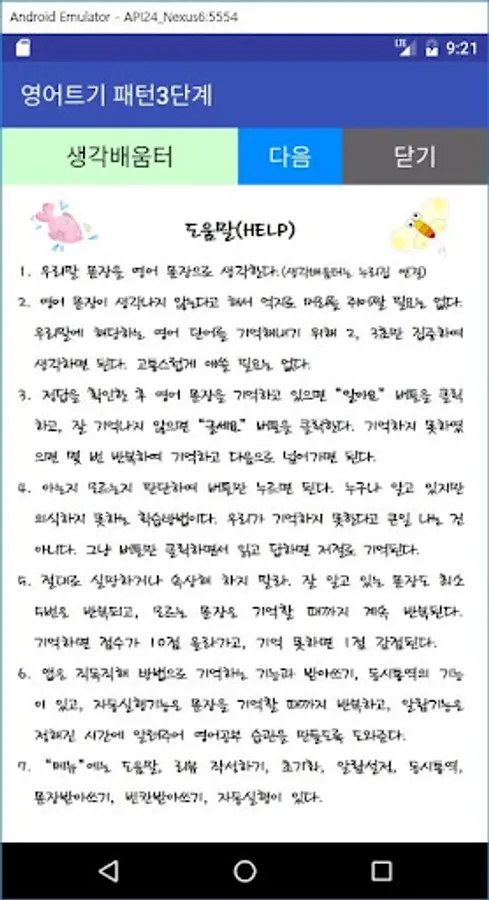 Android Emulator - API24_Nexus6:5554
LTE 9:21
영어트기 패턴3단계
생각배움터 다음 닫기
도움말(HELP)
1. 우리말 문장을 영어 문장으로 생각한다.(생각배움터는 누리집 연결)
2. 영어 문장이 생각나지 않는다고 해서 억지로 머리를 쥐어짤 필요는 없다.
우리말에 해당하는 영어 단어를 기억해내기 위해 2, 3초만 집중하여
생각하면 된다. 고통스럽게 애쓸 필요는 없다.
3. 정답을 확인한 후 영어 문장을 기억하고 있으면 "알아요" 버튼을 클릭
하고, 잘 기억나지 않으면 "글세요" 버튼을 클릭한다. 기억하지 못하였
으면 몇 번 반복하여 기억하고 다음으로 넘어가면 된다.
4. 아는지 모르는지 판단하여 버튼만 누르면 된다. 누구나 알고 있지만
의식하지 못하는 학습방법이다. 우리가 기억하지 못한다고 큰일 나는 건
아니다. 그냥 버튼만 클릭하면서 읽고 답하면 저절로 기억된다.
5. 절대로 실망하거나 속상해 하지 말라. 잘 알고 있는 문장도 최소
5번은 반복되고, 모르는 문장은 기억할 때까지 계속 반복된다.
기억하면 점수가 10점 올라가고, 기억 못하면 1점 감점된다.
6. 앱은 직독직해 방법으로 기억하는 기능과 받아쓰기, 동시통역의 기능
이 있고, 자동실행기능은 문장을 기억할 때까지 반복하고, 알람기능은
정해진 시간에 알려주어 영어공부 습관을 만들도록 도와준다.
7. "메뉴"에는 도움말, 리뷰 작성하기, 초기화, 알람설정, 동시통역,
문장받아쓰기, 빈칸받아쓰기, 자동실행이 있다.